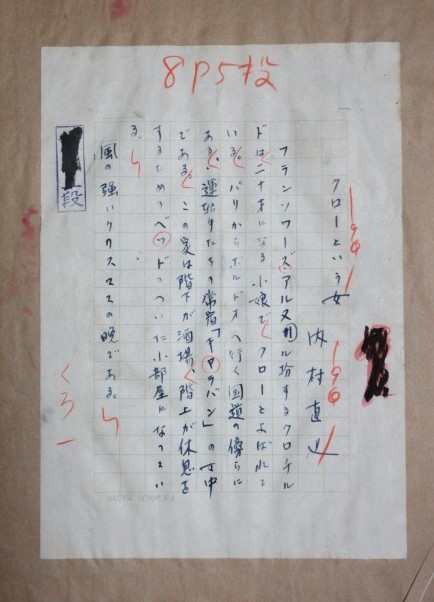 8P5
クローという女
内村直也
フランソワーズ・アルヌール扮するクロチル
ドは二十才になる小娘で、クローとよばれて
いる。パリからボルドオへ行く国道の傍らに
ある、運転手たちの常宿「キャラバン」の女中
である。この家は階下が酒場、階上が休息を
するためのベッドのついた小部屋になってい
る。
風の強いクリスマスの晩である。
段
くろー
NAOYA UCHIMURA